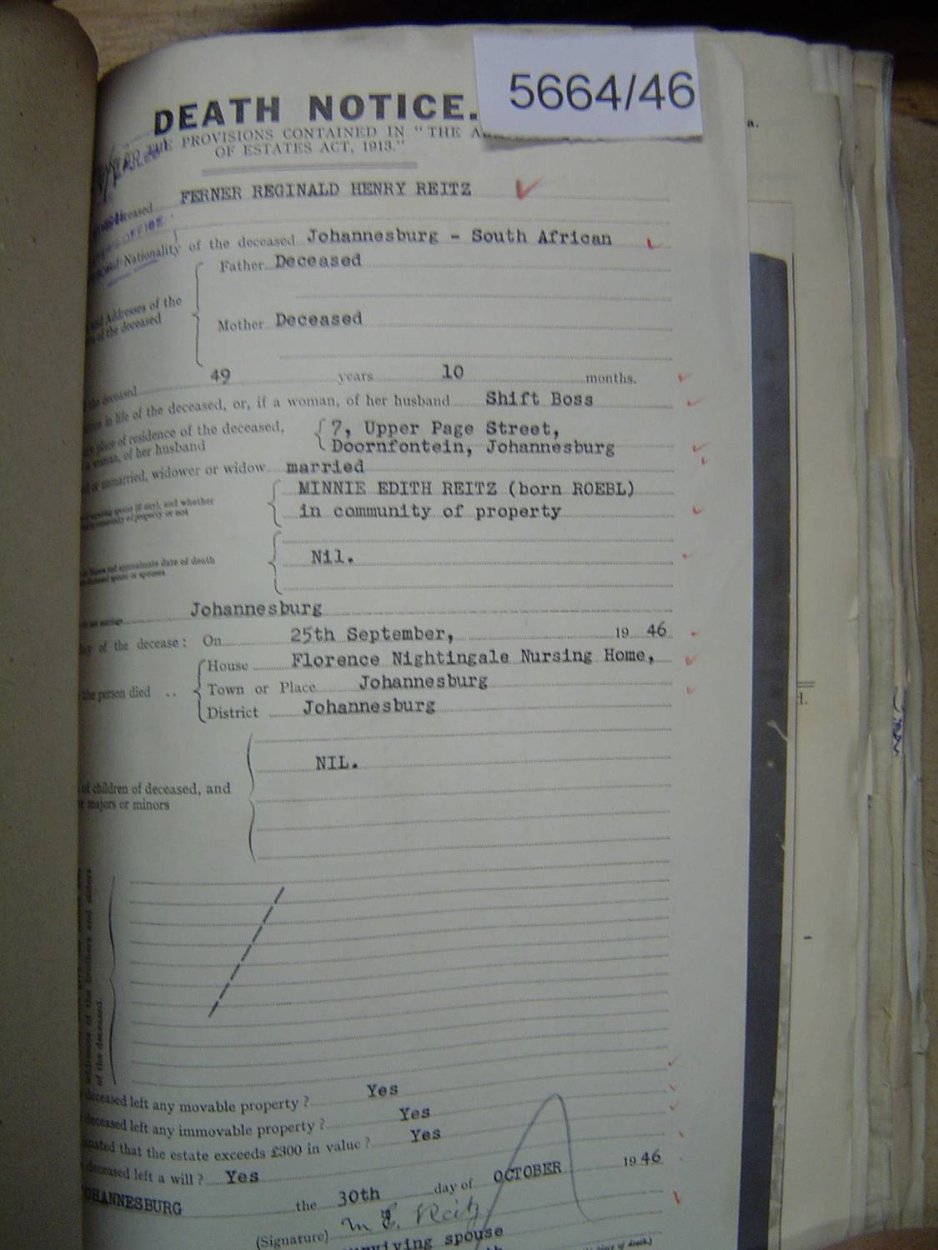 5664/46
DEATH NOTICE.
THE PROVISIONS CONTAINED IN "THE A
OF ESTATES ACT, 1913."
FERNER REGINALD HENRY REITZ
deceased
Nationality of the deceased Johannesburg - South African
Father Deceased
and Addresses of the
of the deceased
Mother Deceased
the deceased 49 years 10 months.
in life of the deceased, or, if a woman, of her husband Shift Boss
place of residence of the deceased, 7, Upper Page Street,
woman, of her husband Doornfontein, Johannesburg
or unmarried, widower or widow married
MINNIE EDITH REITZ (born ROEBL)
spouse (if any), and whether
community of property or not in community of property
and approximate date of death Nil.
spouse or spouses
Johannesburg
of the decease: On 25th September, 19 46
House Florence Nightingale Nursing Home,
the person died .. Town or Place Johannesburg
District Johannesburg
NIL.
of children of deceased, and
majors or minors
addresses of the brothers and sisters
of the deceased.
deceased left any movable property? Yes
deceased left any immovable property? Yes
mated that the estate exceeds £300 in value? Yes
deceased left a will? Yes
OHANNESBURG the 30th day of OCTOBER 19 46
(Signature) M E Reitz
viving spouse
of death.)